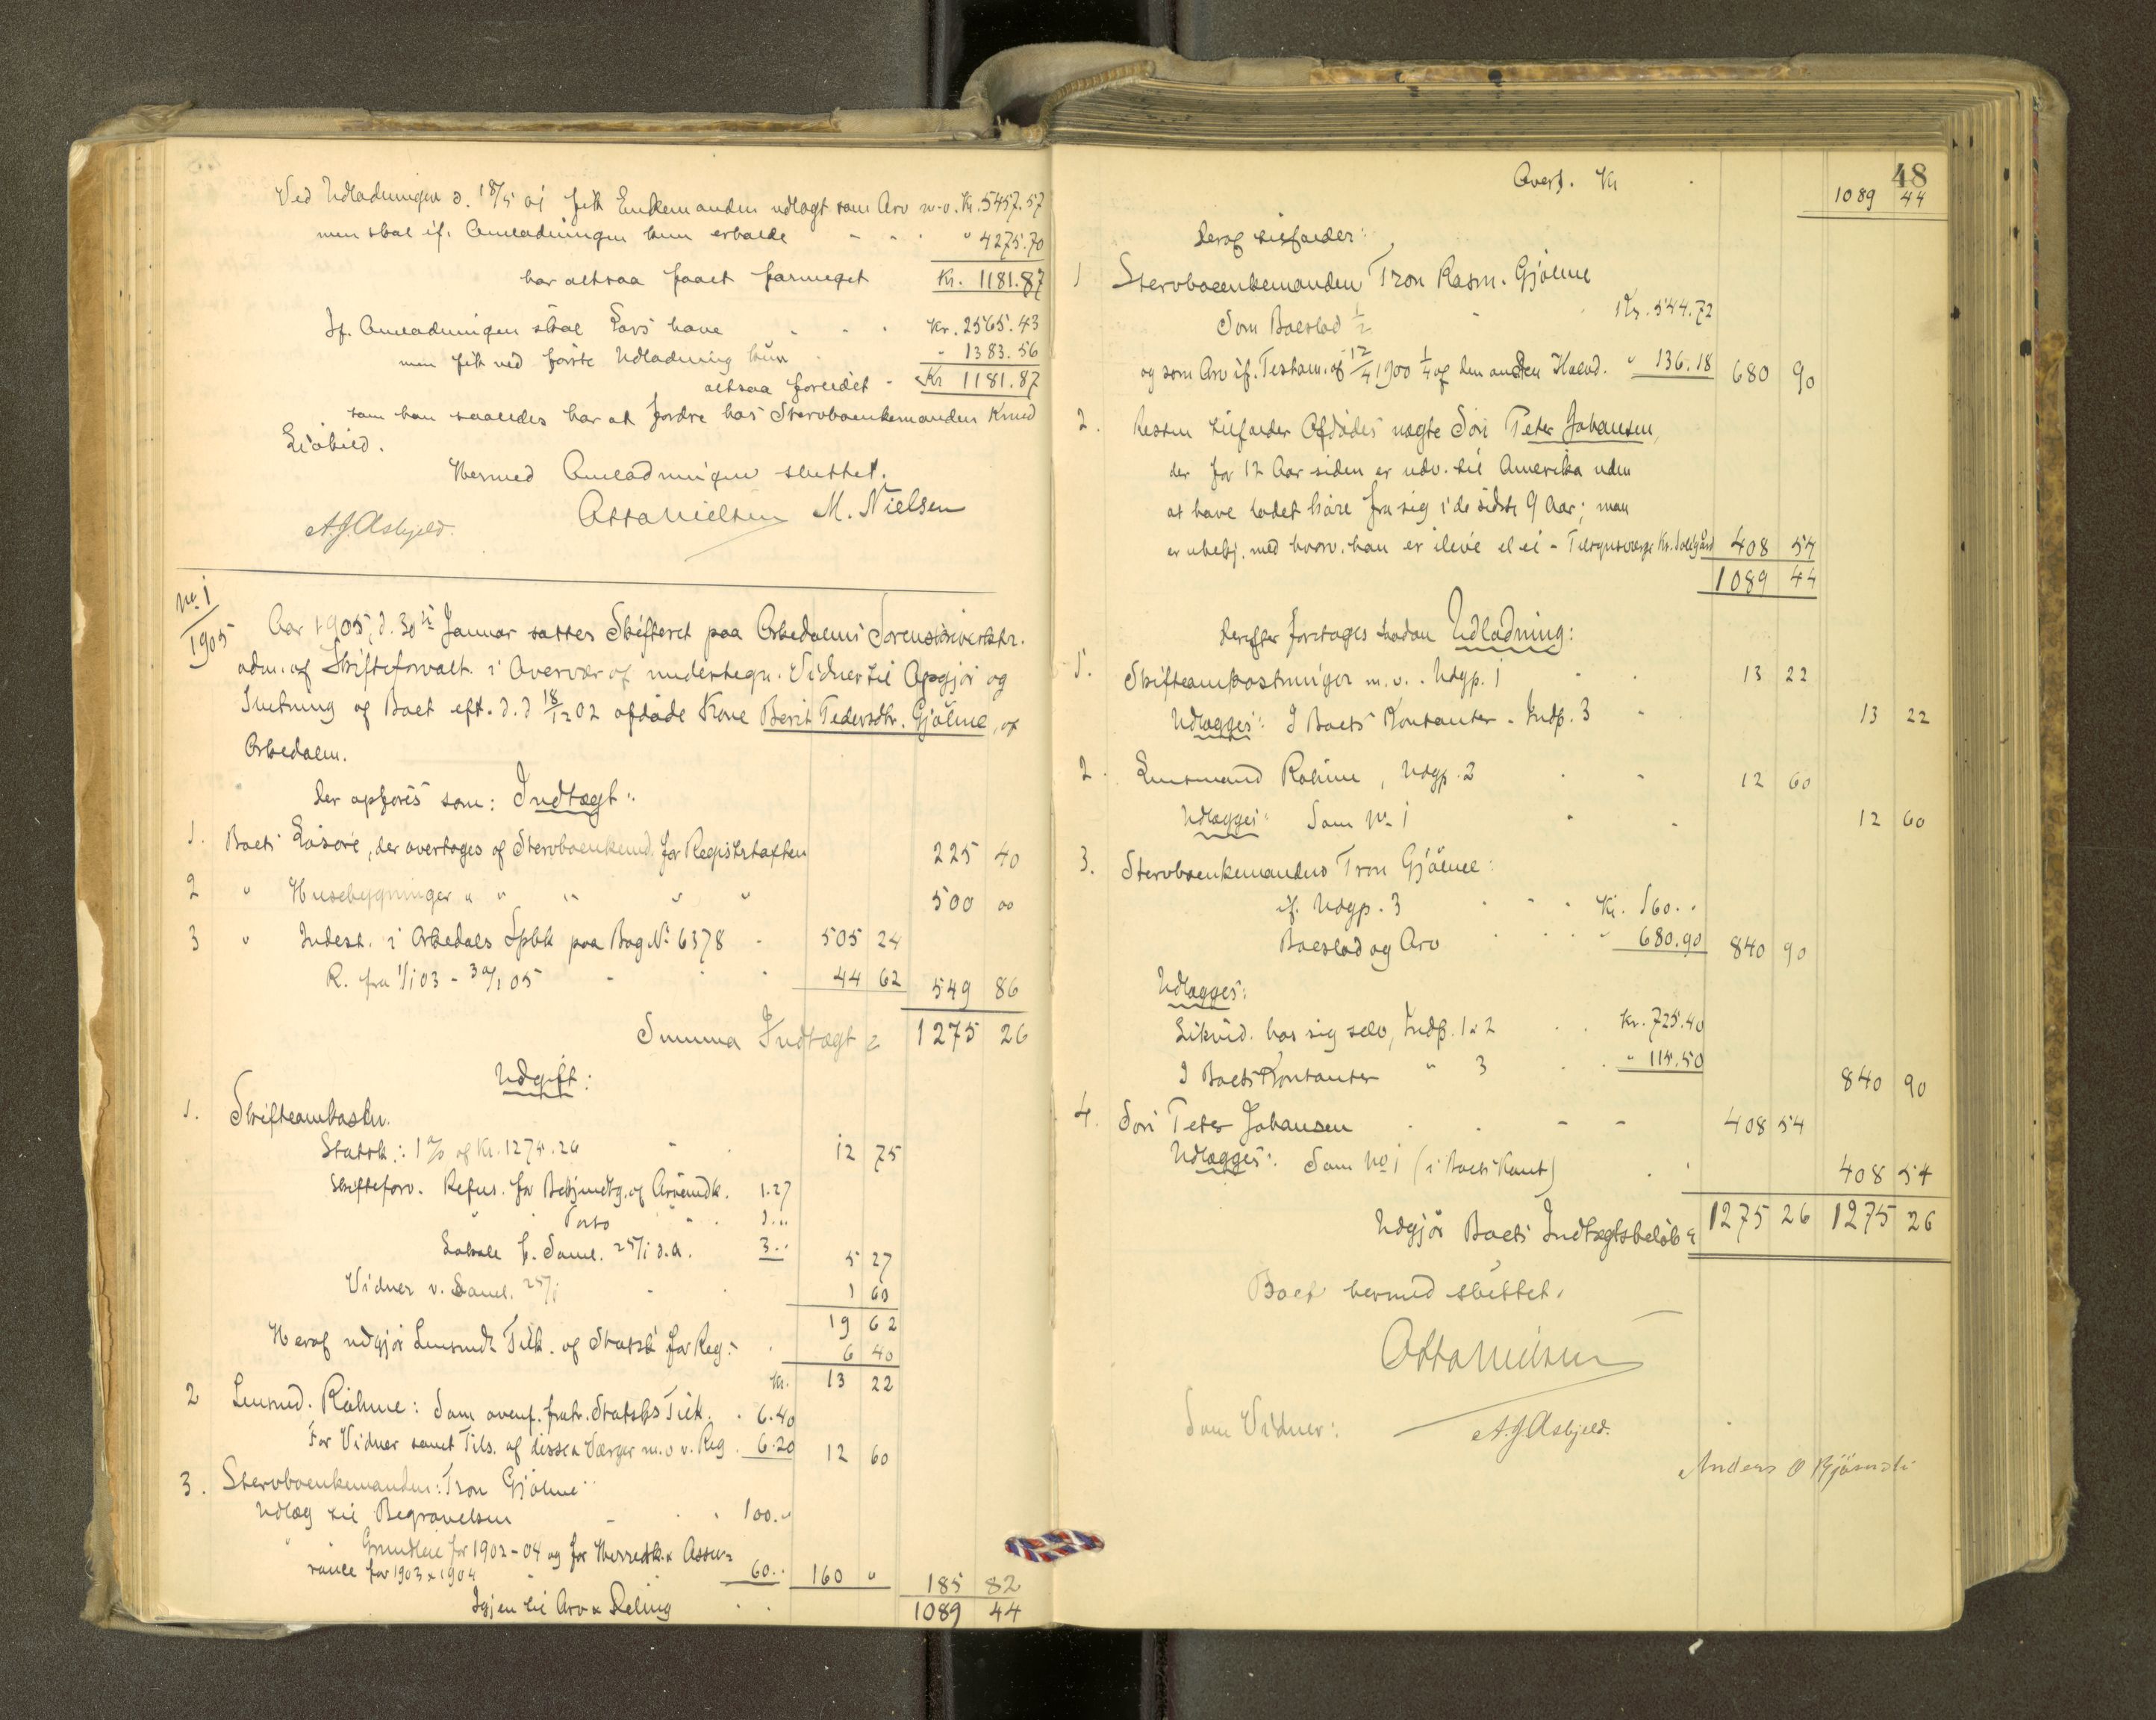 Ved Udlodningen d. 18/5 01 fik Enkemanden udlagt som Arv m.v. Kr. 5457.57
men skal if. Omlodningen kun erholde - - - " 4275.70
har altsaa faaet formeget Kr. 1181.87
If. Omlodningen skal Lars have - - - Kr. 2565.43
men fik ved første Udlodning kun - " 1383.56
altsaa forlidet - Kr 1181.87
som han saaledes har at fordre hos Stervboenkemanden Knud
Hermed Omlodningen sluttet.
Otto Nielsen M. Nielsen
A.J. Asbjeld.
No. 1
1905
Aar 1905, d. 30te Januar sattes Skifteret paa Orkedalens Sorenskriverkstr.
adm. af Skifteforvalt. i Overvær af undertegn. Vidner til Opgjør og
Slutning af Boet eft. d. d 18/12 02 afdøde Kone Berit Pedersdtr. Gjølme, af
Orkedalen.
Der opføres som: Indtægt:
1. Boets Løsøre, der overtages af Stervboenkemd. for Registrtaxten 225 40
2 " Husebygninger " " " " " 500 00
3 " Indest. i Orkedals Spbk paa Bog No 6378 - 505 24
R. fra 1/1 03 - 30/1 05 - 44 62 549 86
Summa Indtægt 1275 26
Udgift:
1. Skifteomkostn.
Statsk.: 1 % af Kr. 1275.26 - 12 75
Skifteforv. Refus. for Bekjendtg. af Arvemdk. 1.27
" Porto " - 1.."
Lokale f. Saml. 25/1 d.a. 3.. 5 27
Vidner v. Saml. 25/1 - 1 60
19 62
Heraf udgjør Lensmds Tilk. af Statsk for Reg. - 6 40
Kr. 13 22
2 Lensmd. Røhme: Som ovenf. fratr. Statsks Tilk. - 6.40
For Vidner samt Tils. af disse & Værger m.v. v. Reg. 6.20 12 60
3. Stervboenkemanden: Tron Gjølme
Udlæg til Begravelsen - - 100."
" Grundleie for 1902-04 og for Herredsk. & Assu=
rance for 1903 & 1904 60.. 160 " 185 82
Igjen til Arv & Deling - - 1089 44
48
Overf. Kr - 1089 44
Deraf tilfalder:
1 Stervboenkemanden Tron Rasm. Gjølme
Som Boeslod 1/2 - Kr. 544.72
og som Arv if. Testam. af 12/4 1900 1/4 af den anden Halvd. " 136.18 680 90
2. Resten tilfalder Afdødes uægte Søn Peter Johansen,
der for 12 Aar siden er udv. til Amerika uden
at have ladet høre fra sig i de sidste 9 Aar; man
er ubekj. med hvorv. han er ilive el. ei - Tilsynsværge 408 54
1089 44
Derefter foretages saadan Udlodning:
1. Skifteomkostninger m.v. . Udgp. 1 - - 13 22
Udlægges: I Boets Kontanter - Indp. 3 - 13 22
2. Lensmand Røhme, Udgp. 2 - - 12 60
Udlægges: Som No 1 - - 12 60
3. Stervboenkemanden Tron Gjølme:
if. Udgp. 3 - - - Kr. 160..
Boeslod og Arv - - - " 680.90 840 90
Udlægges:
Likvid. hos sig selv, Indp. 1 & 2 - - Kr. 725.40
I Boets Kontanter " 3 - - " 115.50 840 90
4. Søn Peter Johansen - - - - 408 54
Udlægges: Som No 1 (i Boets Kont) - - 408 54
Udgjør Boets Indtægtsbeløb 1275 26 1275 26
Boet hermed sluttet.
Otto Nielsen
Som Vidner:
A.J. Asbjeld.
Anders O